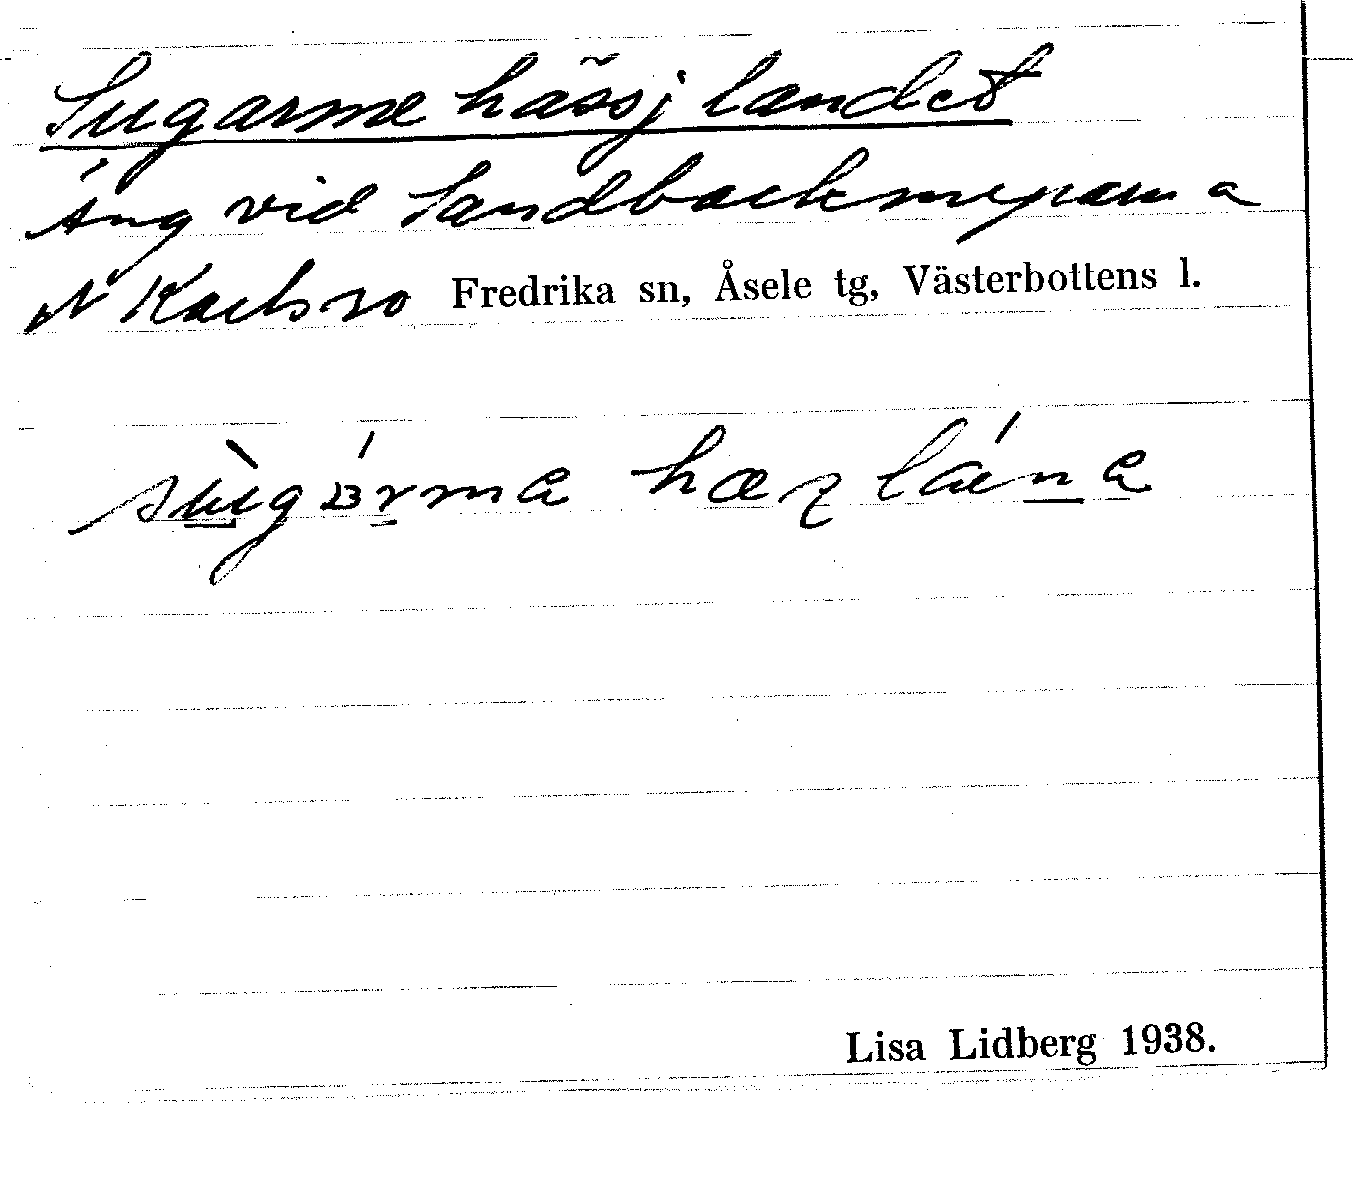 Sugarme hässjlandet
Äng vid Sandbackmyrarna
N Karlsro Fredrika sn, Åsele tg, Västerbottens l.
Lisa Lidberg 1938.